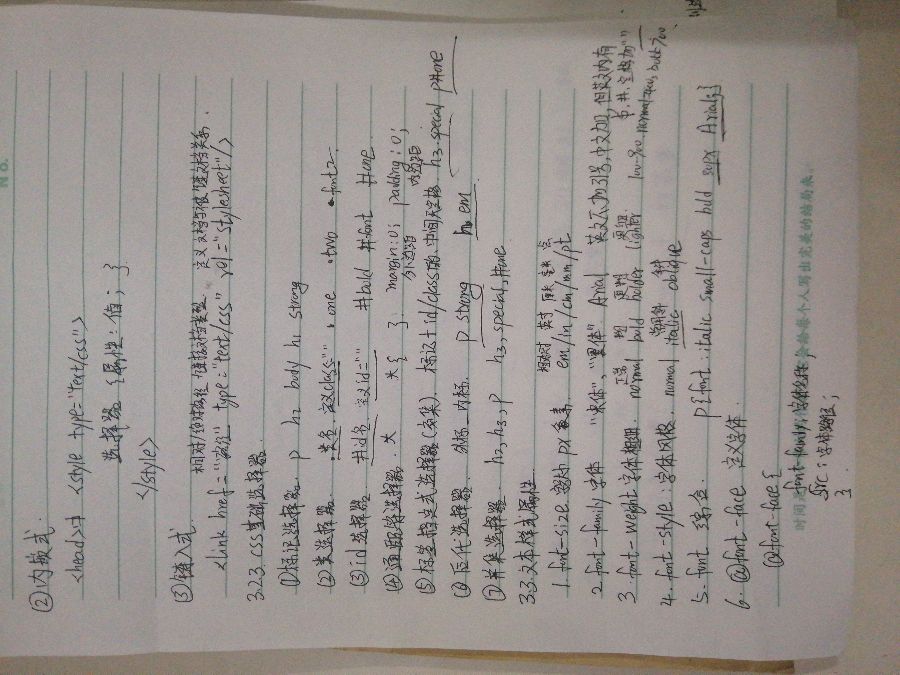 No.
(2)内嵌式.
<head>中 <style type="text/css">
选择器 {属性:值;}
</style>
(3)链入式
相对/绝对路径 链接文档类型 定义文档与被链文档关系.
<link href="路径" type="text/css" rel="stylesheet"/>
3.2.3. css基础选择器
(1)标记选择器 p h2 body h1 strong
(2)类选择器 .类名 定义class="" .one .two .font22
(3)id选择器 #id名 定义id="" #bold #font #one
(4)通配符选择器. * *{ } margin:0; padding:0;
外边距 内边距
(5)标签指定式选择器(交集). 标记+id/class的,中间无空格. h3.special p#one
(6)后代选择器 外标 内标. p strong h2 em
(7)并集选择器. h2,h3,p h3,.special,#one
3.3文本样式属性
相对 英寸 厘米 毫米 点
1. font-size 像素px em/in/cm/mm/pt
2. font-family字体 "宋体","黑体" Arial 英文不加引号,中文加,但英文内有
#,空格加""
正常 粗 更粗 更细
3. font-weight字体粗细. normal bold bolder lighter 100~900
4. font-style:字体风格. normal italic oblique
5. font 综合. p{font:italic small-caps bold Arial;}
6. @font-face 定义字体.
@font-face{
font-family:字体名称;
src:字体路径;
}